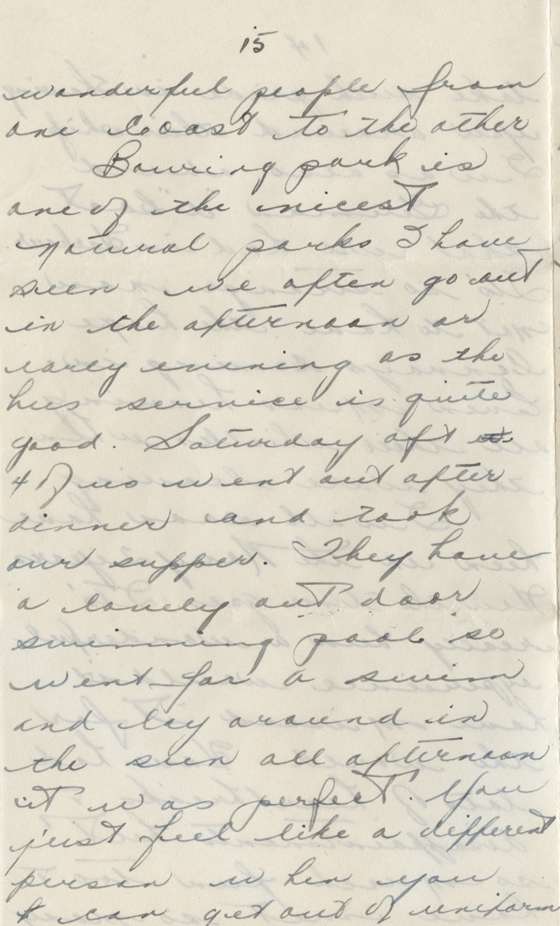 15
wonderful people from
one Coast to the other
Bowring park is
one of the nicest
natural parks I have
seen we often go out
in the afternoon or
earey evening as the
bus service is quite
good. Saturday aft
4 of us went out after
dinner and took
our supper. They have
a lovely out door
swimming pool so
went for a swim
and lay around in
the sun all afternoon
it was perfect. You
just feel like a different
person when you
& can get out of uniform